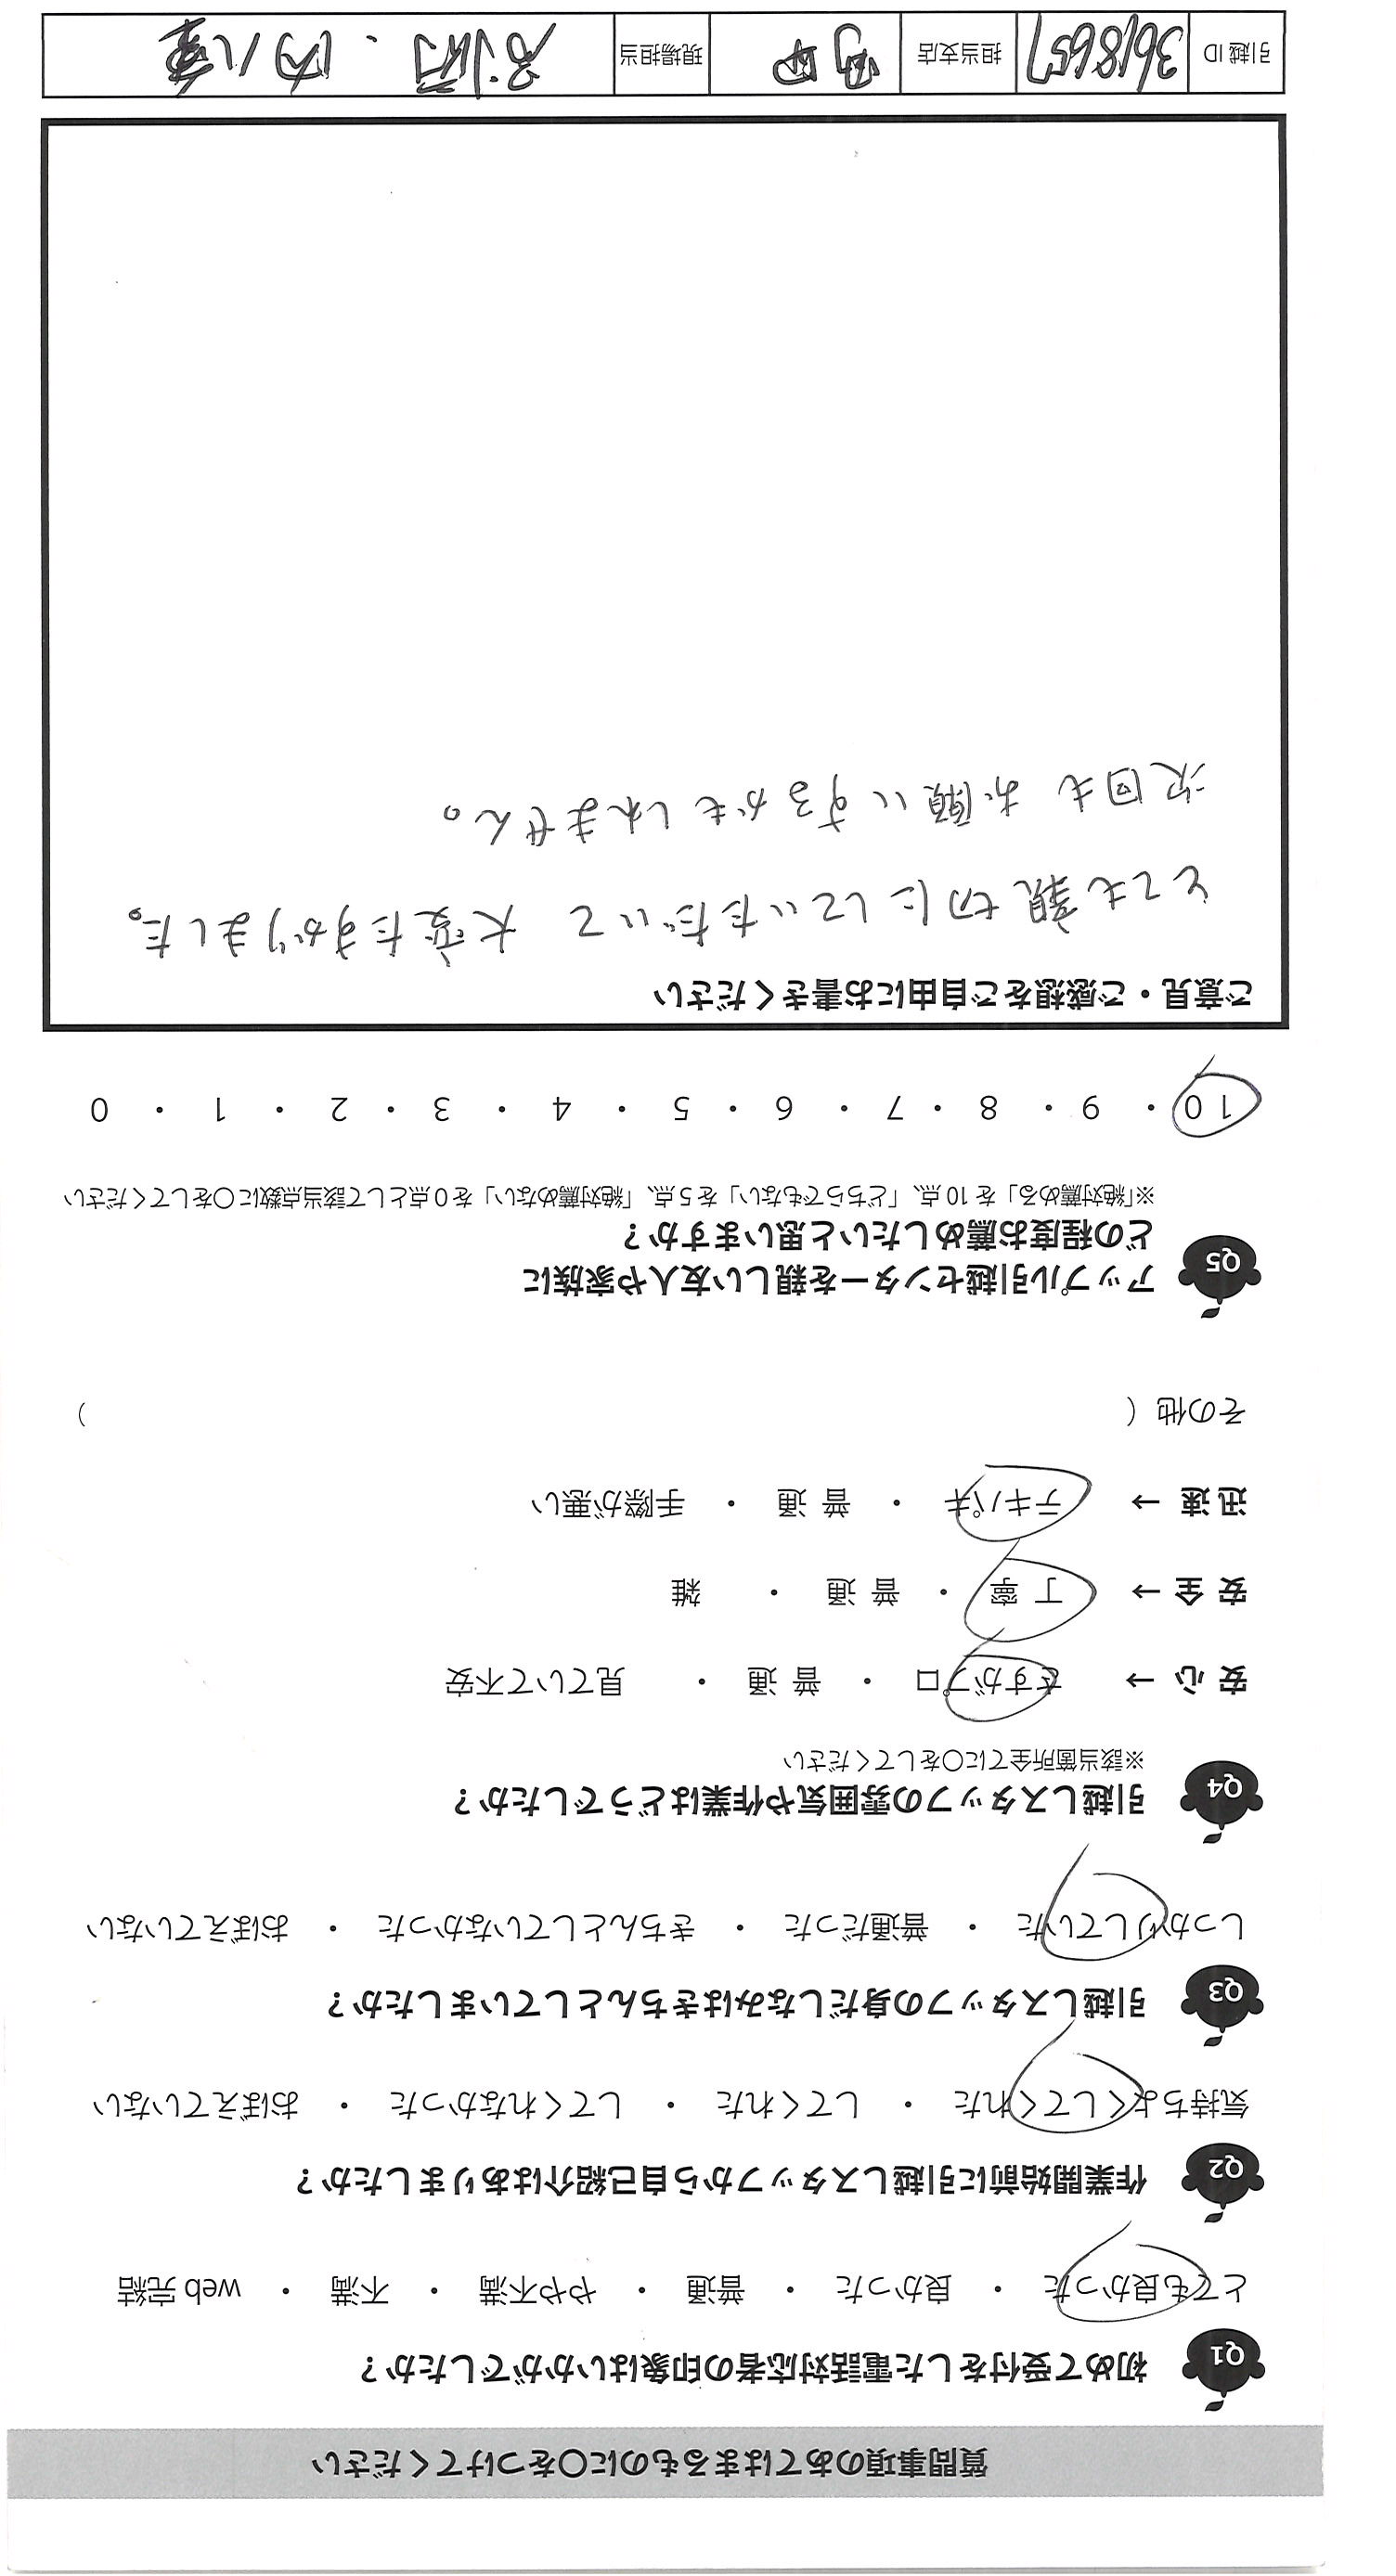 質問事項のあてはまるものに〇をつけてください
Q1 初めて受付をした電話対応者の印象はいかがでしたか？
とても良かった ・ 良かった ・ 普通 ・ やや不満 ・ 不満 ・ web 完結
Q2 作業開始前に引越しスタッフから自己紹介はありましたか？
気持ちよくしてくれた ・ してくれた ・ してくれなかった ・ おぼえていない
Q3 引越しスタッフの身だしなみはきちんとしていましたか？
しっかりしていた ・ 普通だった ・ きちんとしていなかった ・ おぼえていない
Q4 引越しスタッフの雰囲気や作業はどうでしたか？
※該当箇所全てに〇をしてください
安 心 → さすがプロ ・ 普 通 ・ 見ていて不安
安 全 → 丁 寧 ・ 普 通 ・ 雑
迅 速 → テキパキ ・ 普 通 ・ 手際が悪い
その他（ ）
Q5 アップル引越センターを親しい友人や家族に
どの程度お薦めしたいと思いますか？
※「絶対薦める」を 10 点、「どちらでもない」を 5 点、「絶対薦めない」を 0 点として該当点数に〇をしてください
10 ・ 9 ・ 8 ・ 7 ・ 6 ・ 5 ・ 4 ・ 3 ・ 2 ・ 1 ・ 0
ご意見・ご感想をご自由にお書きください
とても親切にしていただいて 大変たすかりました。
次回も お願いするかもしれません。
引越 ID 3618657 担当支店 現場担当